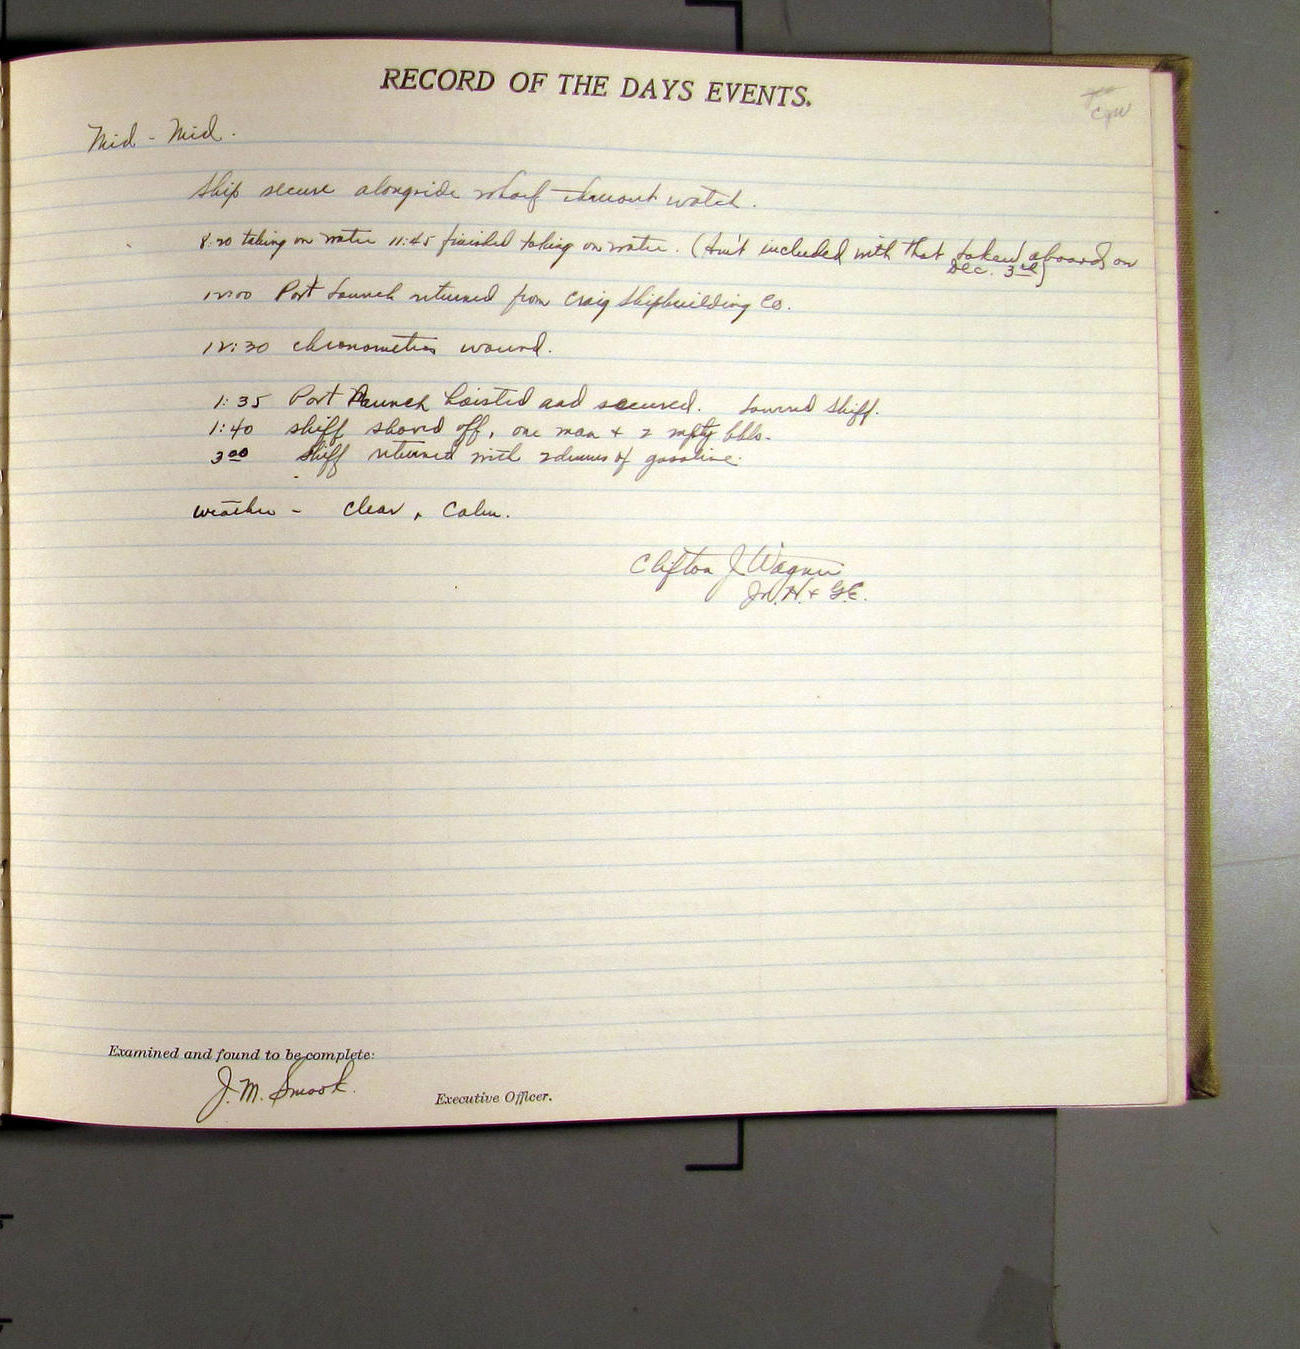 RECORD OF THE DAYS EVENTS.
Mid - Mid.
Ship secure alongside wharf watch.
8:20 taking on water 11:45 finished taking on water. (Am't included with that taken aboard on
Dec. 3rd)
12:00 Port Launch returned from Craig Shipbuilding Co.
12:30 chronometers wound.
1:35 Port Launch hoisted and secured. Lowered skiff.
1:40 skiff shoved off, one man + 2 empty bbls.
3 00 Skiff returned with 2 drums of gasoline.
Weather - Clear, Calm.
Clifton J Wagner
Jr. H. + G.E.
Examined and found to be complete:
J. M. Smook.
Executive Officer.